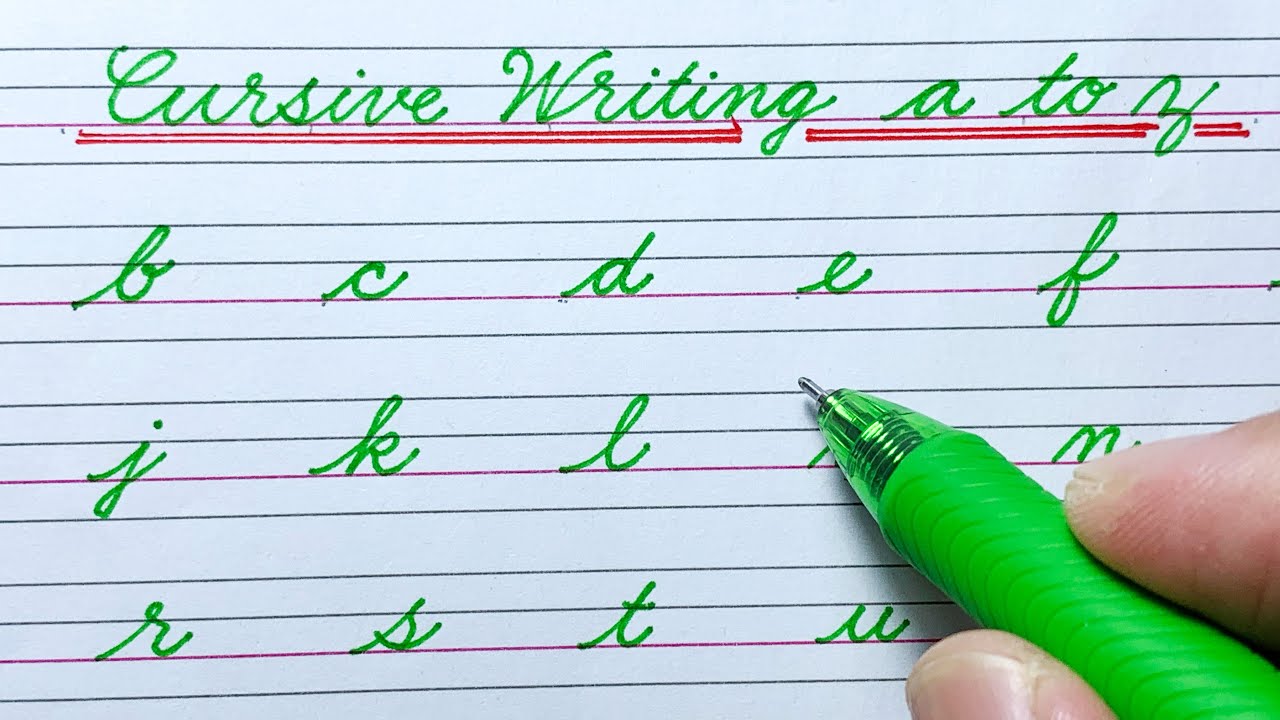 Cursive Writing a to z
b c d e f
j k l n
r s t u